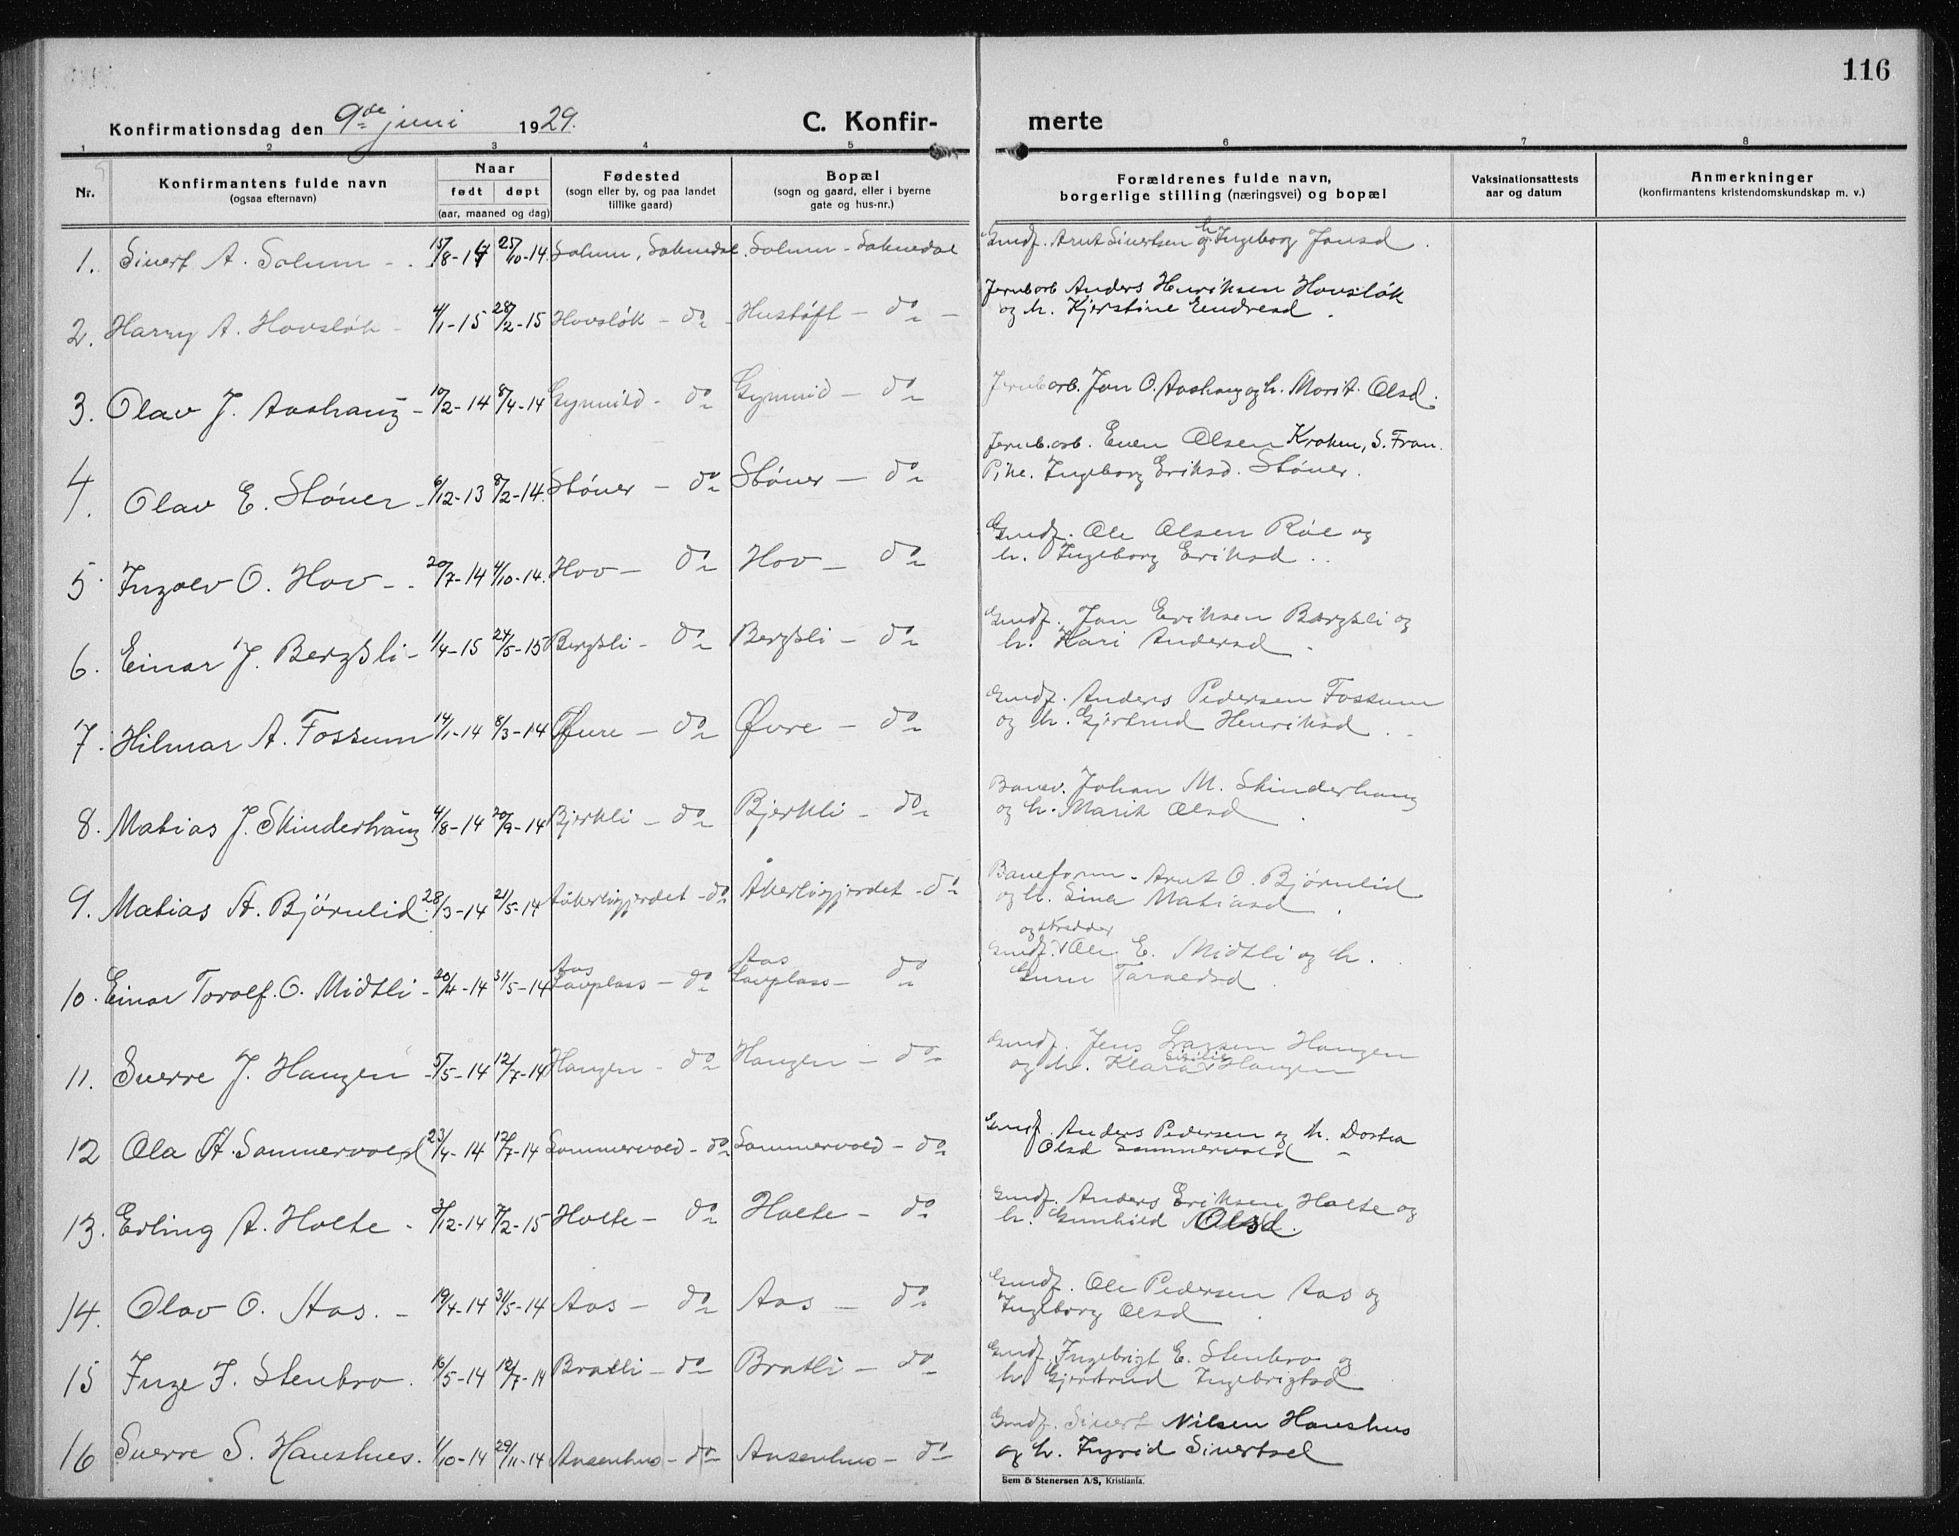 116
Konfirmationsdag den 9de juni 1929. C. Konfirmerte
1 2 3 4 5 6 7 8
Nr. Konfirmantens fulde navn (ogsaa efternavn) Naar født døpt (aar, maaned og dag) Fødested (sogn eller by, og paa landet tillike gaard) Bopæl (sogn og gaard, eller i byerne gate og hus-nr.) Forældrenes fulde navn, borgerlige stilling (næringsvei) og bopæl Vaksinationsattests aar og datum Anmerkninger (konfirmantens kristendomskundskap m. v.)
1. Sivert A. Solum - 15/8-14 25/10-14. Solum, Soknedal. Solum - Soknedal Gmdf. Arnt Sivertsen og h. Ingeborg Jonsd.
2. Harry A. Hovsløk - 4/1-15 28/2-15 Hovsløk - do - Hustøft - do - Jernb.arb. Anders Henriksen Hovsløk
og h. Kjerstine Eindresd.
3. Olav J. Aashaug - 10/2-14 8/4-14 Gynnild - do Gynnild - do Jernb.arb. Jon O. Aashaug og h. Marit Olsd.
4. Olav E. Støver - 6/12-13 8/2-14. Støver - do Støver - do Jernb.arb. Even Olsen Kroken, S. Fron.
Pike. Ingeborg Eriksd. Støver.
5 Ingolv O. Hov - 20/7-14 4/10-14. Hov - do Hov - do Gmdf. Ole Olsen Røe og
h. Ingeborg Eriksd.
6. Einar J. Bergsli - 1/4-15 24/5-15 Bergsli - do Bergsli - do Gmdf. Jon Eriksen Bergsli og
h. Kari Andersd.
7. Hilmar A. Fossum 14/1-14 8/3-14 Øvre - do Øvre - do Gmdf. Anders Pedersen Fossum
og h. Gjertrud Henriksd.
8. Matias J. Skinderhaug 4/8-14 20/9-14 Bjerkli - do Bjerkli - do Banev. Johan M. Skinderhaug
og h. Marit Olsd.
9. Matias A. Bjørnlid 28/3-14 21/5-14 - do - do Baneform. Arnt O. Bjørnlid
og h. Sina Matiasd.
10. Einar Torolf. O. Midtli - 20/4-14 31/5-14 Aas - do Aas - do Gmdf. og skredder Ole E. Midtli og h.
Guru
11. Sverre J. Haugen - 5/5-14 12/7-14 Haugen - do Haugen - do Gmdf. Jens Larsen Haugen
og h. Klara Haugen
12 Ola A. Sommervold 23/4-14 12/7-14 Sommervold - do Sommervold - do Gmdf. Anders Pedersen og h. Dortea
Olsd Sommervold
13. Erling A. Holte - 3/12-14 7/2-15 Holte - do Holte - do Gmdf. Anders Eriksen Holte og
h. Gunhild Olsd.
14. Olav O. Aas. - 19/4-14 31/5-14 Aas - do Aas - do Gmdf. Ole Pedersen Aas og
Ingeborg Olsd
15 Inge I. Stenbro. 16/5-14 12/7-14 Bratli - do Bratli - do Gmdf. Ingebrigt E. Stenbro og
h. Gjertrud Ingebrigtsd
16 Sverre S. Haushus. 1/10-14 29/11-14 Ansenhus - do Ansenhus - do Gmdf. Sivert Nilsen Haushus
og h. Ingrid Sivertsd
Sem & Stenersen A/S, Kristiania.